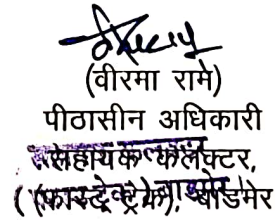 (वीरमा राम)
पीठासीन अधिकारी
सहायक कलेक्टर,
(फास्ट ट्रेक), बाडमेर